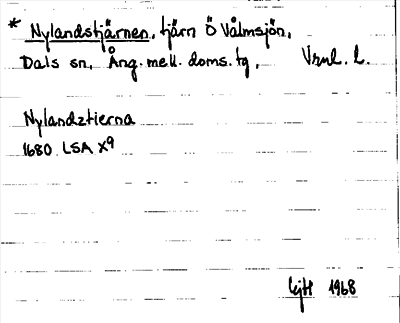 * Nylandstjärnen, tjärn Ö Vålmsjön,
Dals sn, Ång. mell. doms. tg, Vrnl. l.
Nylandztierna
1680 LSA X9
1968